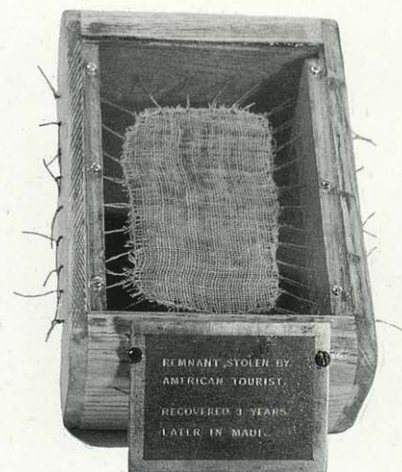 REMNANT, STOLEN BY
AMERICAN TOURIST.
RECOVERED 3 YEARS
LATER IN MAUI.